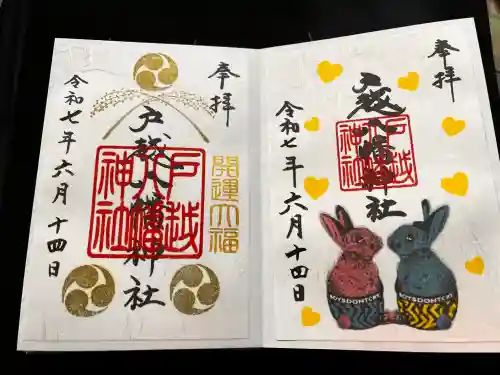 奉拝
戸越八幡神社
戸越八幡神社
開運大福
令和七年六月十四日
奉拝
戸越八幡神社
戸越八幡神社
令和七年六月十四日
BOYSDONTCRY
BOYSDONTCRY